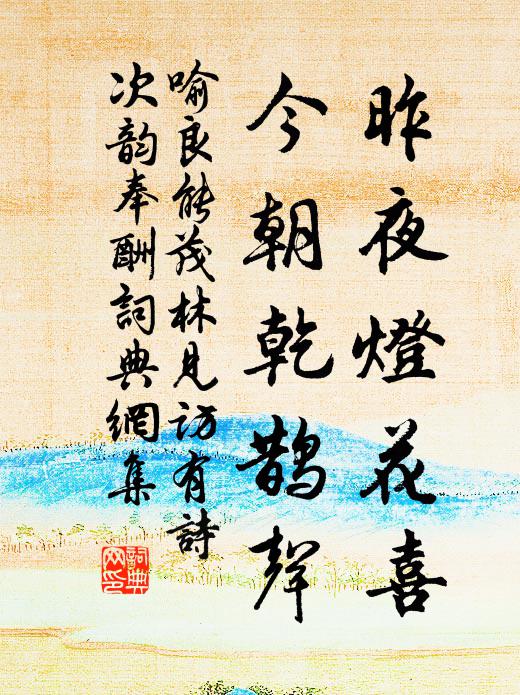 昨夜燈花喜
今朝乾鵲聲
喻良能茂林見訪有詩
次韵奉酬詞典網集
詞典
网印